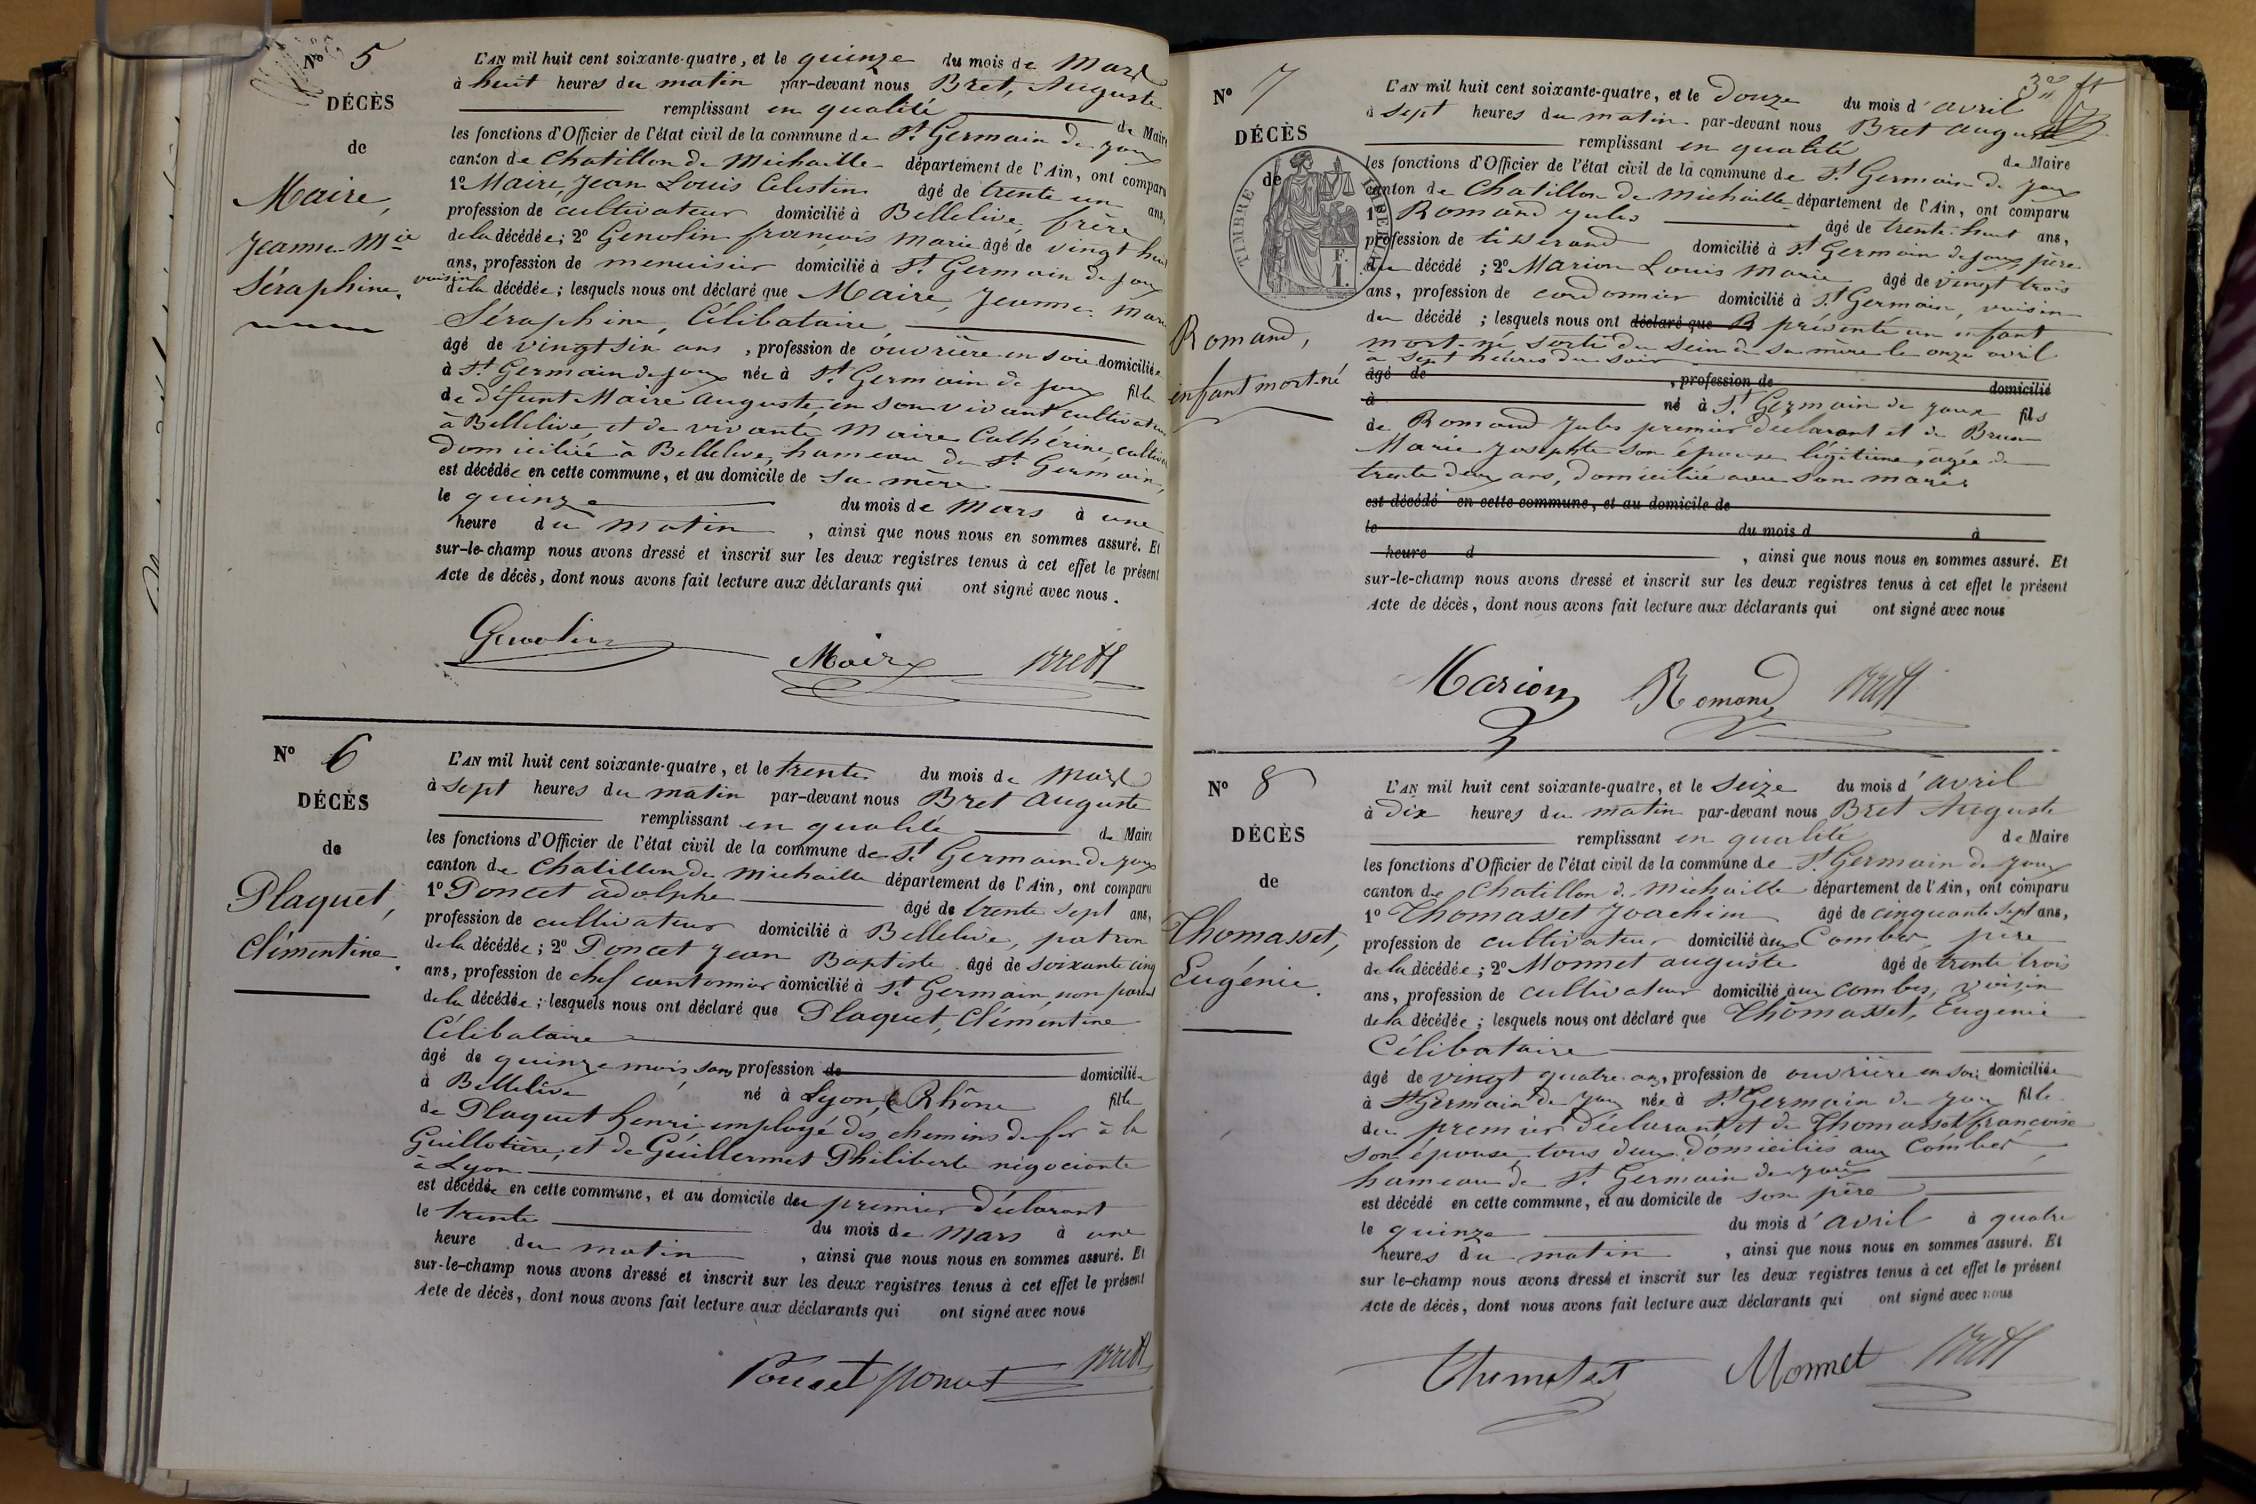 Nº 5
DÉCÈS
de
Maire,
Jeanne Mie
Séraphine.
L'AN mil huit cent soixante-quatre, et le quinze du mois de Mars
à huit heures du matin par-devant nous Bret, Auguste
remplissant en qualité de Maire
les fonctions d'Officier de l'état civil de la commune de St. Germain de Joux
canton de Chatillon de Michaille département de l'Ain, ont comparu
1º Maire, Jean Louis Célestin âgé de trente un ans,
profession de cultivateur domicilié à Bellelive, frère
de la décédée; 2º Genolin françois Marie âgé de vingt huit
ans, profession de menuisier domicilié à St. Germain de Joux
voisin de la décédée; lesquels nous ont déclaré que Maire, Jeanne Marie
Séraphine, Célibataire,
âgé de vingt six ans, profession de ouvrière en soie domiciliée
à St. Germain de Joux née à St. Germain de Joux fille
de défunt Maire Auguste, en son vivant cultivateur
à Bellelive et de vivante Maire Cathérine, cultiv
domiciliée à Bellelive, hameau de St. Germain,
est décédée en cette commune, et au domicile de sa mère
le quinze du mois de Mars à une
heure du matin, ainsi que nous nous en sommes assuré. Et
sur-le-champ nous avons dressé et inscrit sur les deux registres tenus à cet effet le présent
Acte de décès, dont nous avons fait lecture aux déclarants qui ont signé avec nous.
Genolin Maire Brett
Nº 6
DÉCÈS
de
Plaquet,
Clémentine.
L'AN mil huit cent soixante-quatre, et le trente du mois de Mars
à sept heures du matin par-devant nous Bret Auguste
remplissant en qualité de Maire
les fonctions d'Officier de l'état civil de la commune de St. Germain de Joux
canton de Chatillon de Michaille département de l'Ain, ont comparu
1º Poncet Adolphe âgé de trente sept ans,
profession de cultivateur domicilié à Bellelive, patron
de la décédée; 2º Poncet Jean Baptiste âgé de soixante cinq
ans, profession de chef cantonnier domicilié à St. Germain, non parent
de la décédée; lesquels nous ont déclaré que Plaquet, Clémentine
Célibataire
âgé de quinze mois, sans profession de domiciliée
à Bellelive né à Lyon, Rhône fille
de Plaquet henri employé des chemins de fer à la
Guillotière, et de Guillermet Philiberte négociante
à Lyon
est décédée en cette commune, et au domicile du premier déclarant
le trente du mois de Mars à une
heure du matin, ainsi que nous nous en sommes assuré. Et
sur-le-champ nous avons dressé et inscrit sur les deux registres tenus à cet effet le présent
Acte de décès, dont nous avons fait lecture aux déclarants qui ont signé avec nous
Poncet Poncet Brett
Nº 7
DÉCÈS
de
TIMBRE IMPERIAL
F.
1.
Romand,
enfant mort-né
L'AN mil huit cent soixante-quatre, et le douze du mois d'avril
à sept heures du matin par-devant nous Bret Auguste
remplissant en qualité de Maire
les fonctions d'Officier de l'état civil de la commune de St. Germain de Joux
canton de Chatillon de Michaille département de l'Ain, ont comparu
1º Romand Jules âgé de trente-huit ans,
profession de tisserand domicilié à St. Germain de Joux père
du décédé; 2º Marion Louis Marie âgé de vingt trois
ans, profession de cordonnier domicilié à St. Germain, voisin
du décédé; lesquels nous ont déclaré que présenté un enfant
mort-né sorti du sein de sa mère le onze avril
à sept heures du soir
âgé de , profession de domicilié
à né à St. Germain de Joux fils
de Romand Jules premier déclarant et de Brun
Marie Josephte son épouse légitime, âgée de
trente deux ans, domiciliée avec son mari.
est décédé en cette commune, et au domicile de
le du mois d à
heure d , ainsi que nous nous en sommes assuré. Et
sur-le-champ nous avons dressé et inscrit sur les deux registres tenus à cet effet le présent
Acte de décès, dont nous avons fait lecture aux déclarants qui ont signé avec nous
Marion Romand Brett
Nº 8
DÉCÈS
de
Thomasset,
Eugénie.
L'AN mil huit cent soixante-quatre, et le seize du mois d'avril
à dix heures du matin par-devant nous Bret Auguste
remplissant en qualité de Maire
les fonctions d'Officier de l'état civil de la commune de St. Germain de Joux
canton de Chatillon de Michaille département de l'Ain, ont comparu
1º Thomasset Joachim âgé de cinquante sept ans,
profession de cultivateur domicilié aux Combes, père
de la décédée; 2º Monnet auguste âgé de trente trois
ans, profession de cultivateur domicilié aux combes, voisin
de la décédée; lesquels nous ont déclaré que Thomasset, Eugénie
Célibataire
âgé de vingt quatre ans, profession de ouvrière en soie domiciliée
à St Germain de Joux née à St. Germain de Joux fille
du premier déclarant et de Thomasset françoise
son épouse, tous deux domiciliés aux Combes,
hameau de St. Germain de Joux
est décédé en cette commune, et au domicile de son père
le quinze du mois d'avril à quatre
heures du matin, ainsi que nous nous en sommes assuré. Et
sur le-champ nous avons dressé et inscrit sur les deux registres tenus à cet effet le présent
Acte de décès, dont nous avons fait lecture aux déclarants qui ont signé avec nous
Thomasset Monnet Brett